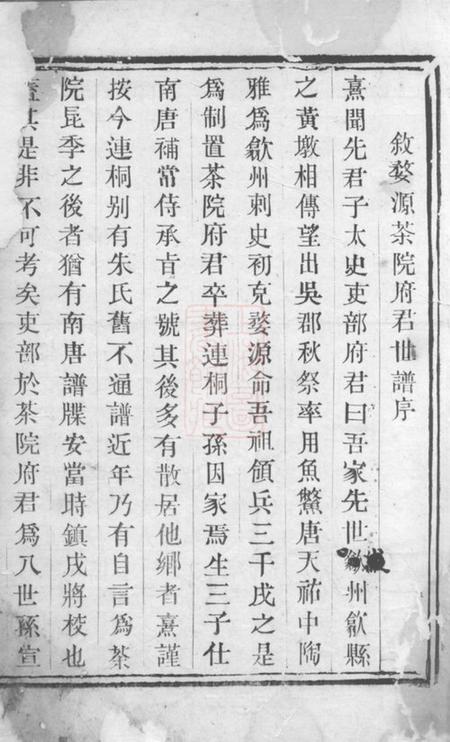 敘婺源茶院府君世譜序
熹聞先君子太史吏部府君曰吾家先世歙州歙縣
之黃墩相傳望出吳郡秋祭率用魚鱉唐天祐中陶
雅為歙州刺史初克婺源命吾祖領兵三千戍之是
為制置茶院府君卒葬連桐子孫因家焉生三子仕
南唐補常侍承旨之號其後多有散居他鄉者熹謹
按今連桐别有朱氏舊不通譜近年乃有自言為茶
院昆季之後者猶有南唐譜牒安當時鎮戍將校也
其是非不可考矣吏部於茶院府君為八世孫宣